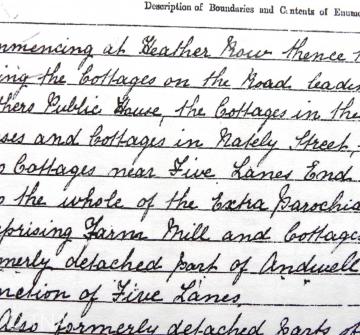 Description of Boundaries and Contents of Enume
mmencing at Heather Row thence
ing the Cottages on the Road leadin
thers Public House, the Cottages in the
ses and Cottages in Nately Street,
Cottages near Five Lanes End
the whole of the Extra Parochia
prising Farm Mill and Cottages
merly detached part of Andwell
nction of Five Lanes
Also formerly detached parts of